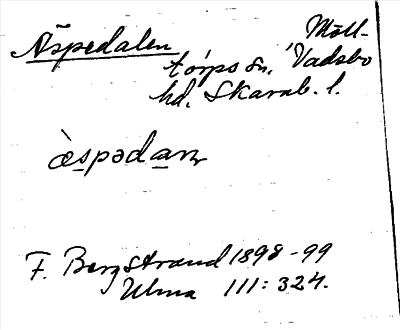 Äspedalen Möll-
torps sn. Vadsbo
hd. Skarab. l.
æ̀spədan
F. Bergstrand 1898-99
Ulma 111:324.